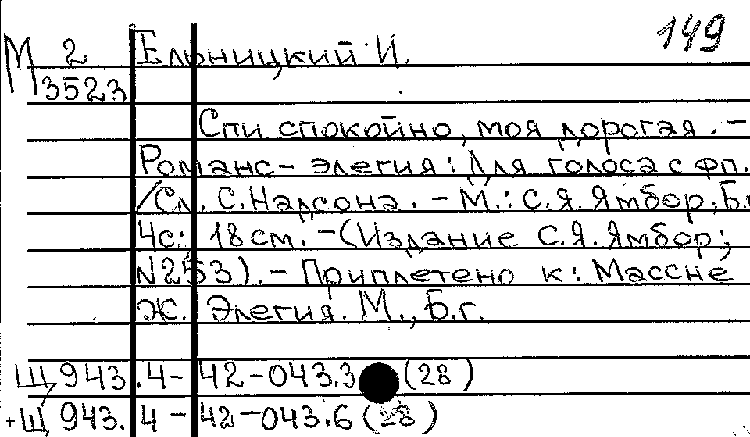 149
М 2 Ельницкий И.
3523
Спи спокойно, моя дорогая. -
Романс - элегия: Для голоса с фп.
/Сл. С. Надсона. - М.: С.Я. Ямбор, Б.г
4с: 18 см. - (Издание С.Я. Ямбор;
N253). - Приплетено к: Массне
Ж. Элегия. М., Б.г.
Щ 943.4 - 42 - 043.3 (28)
+Щ 943.4 - 42 - 043.6 (28)